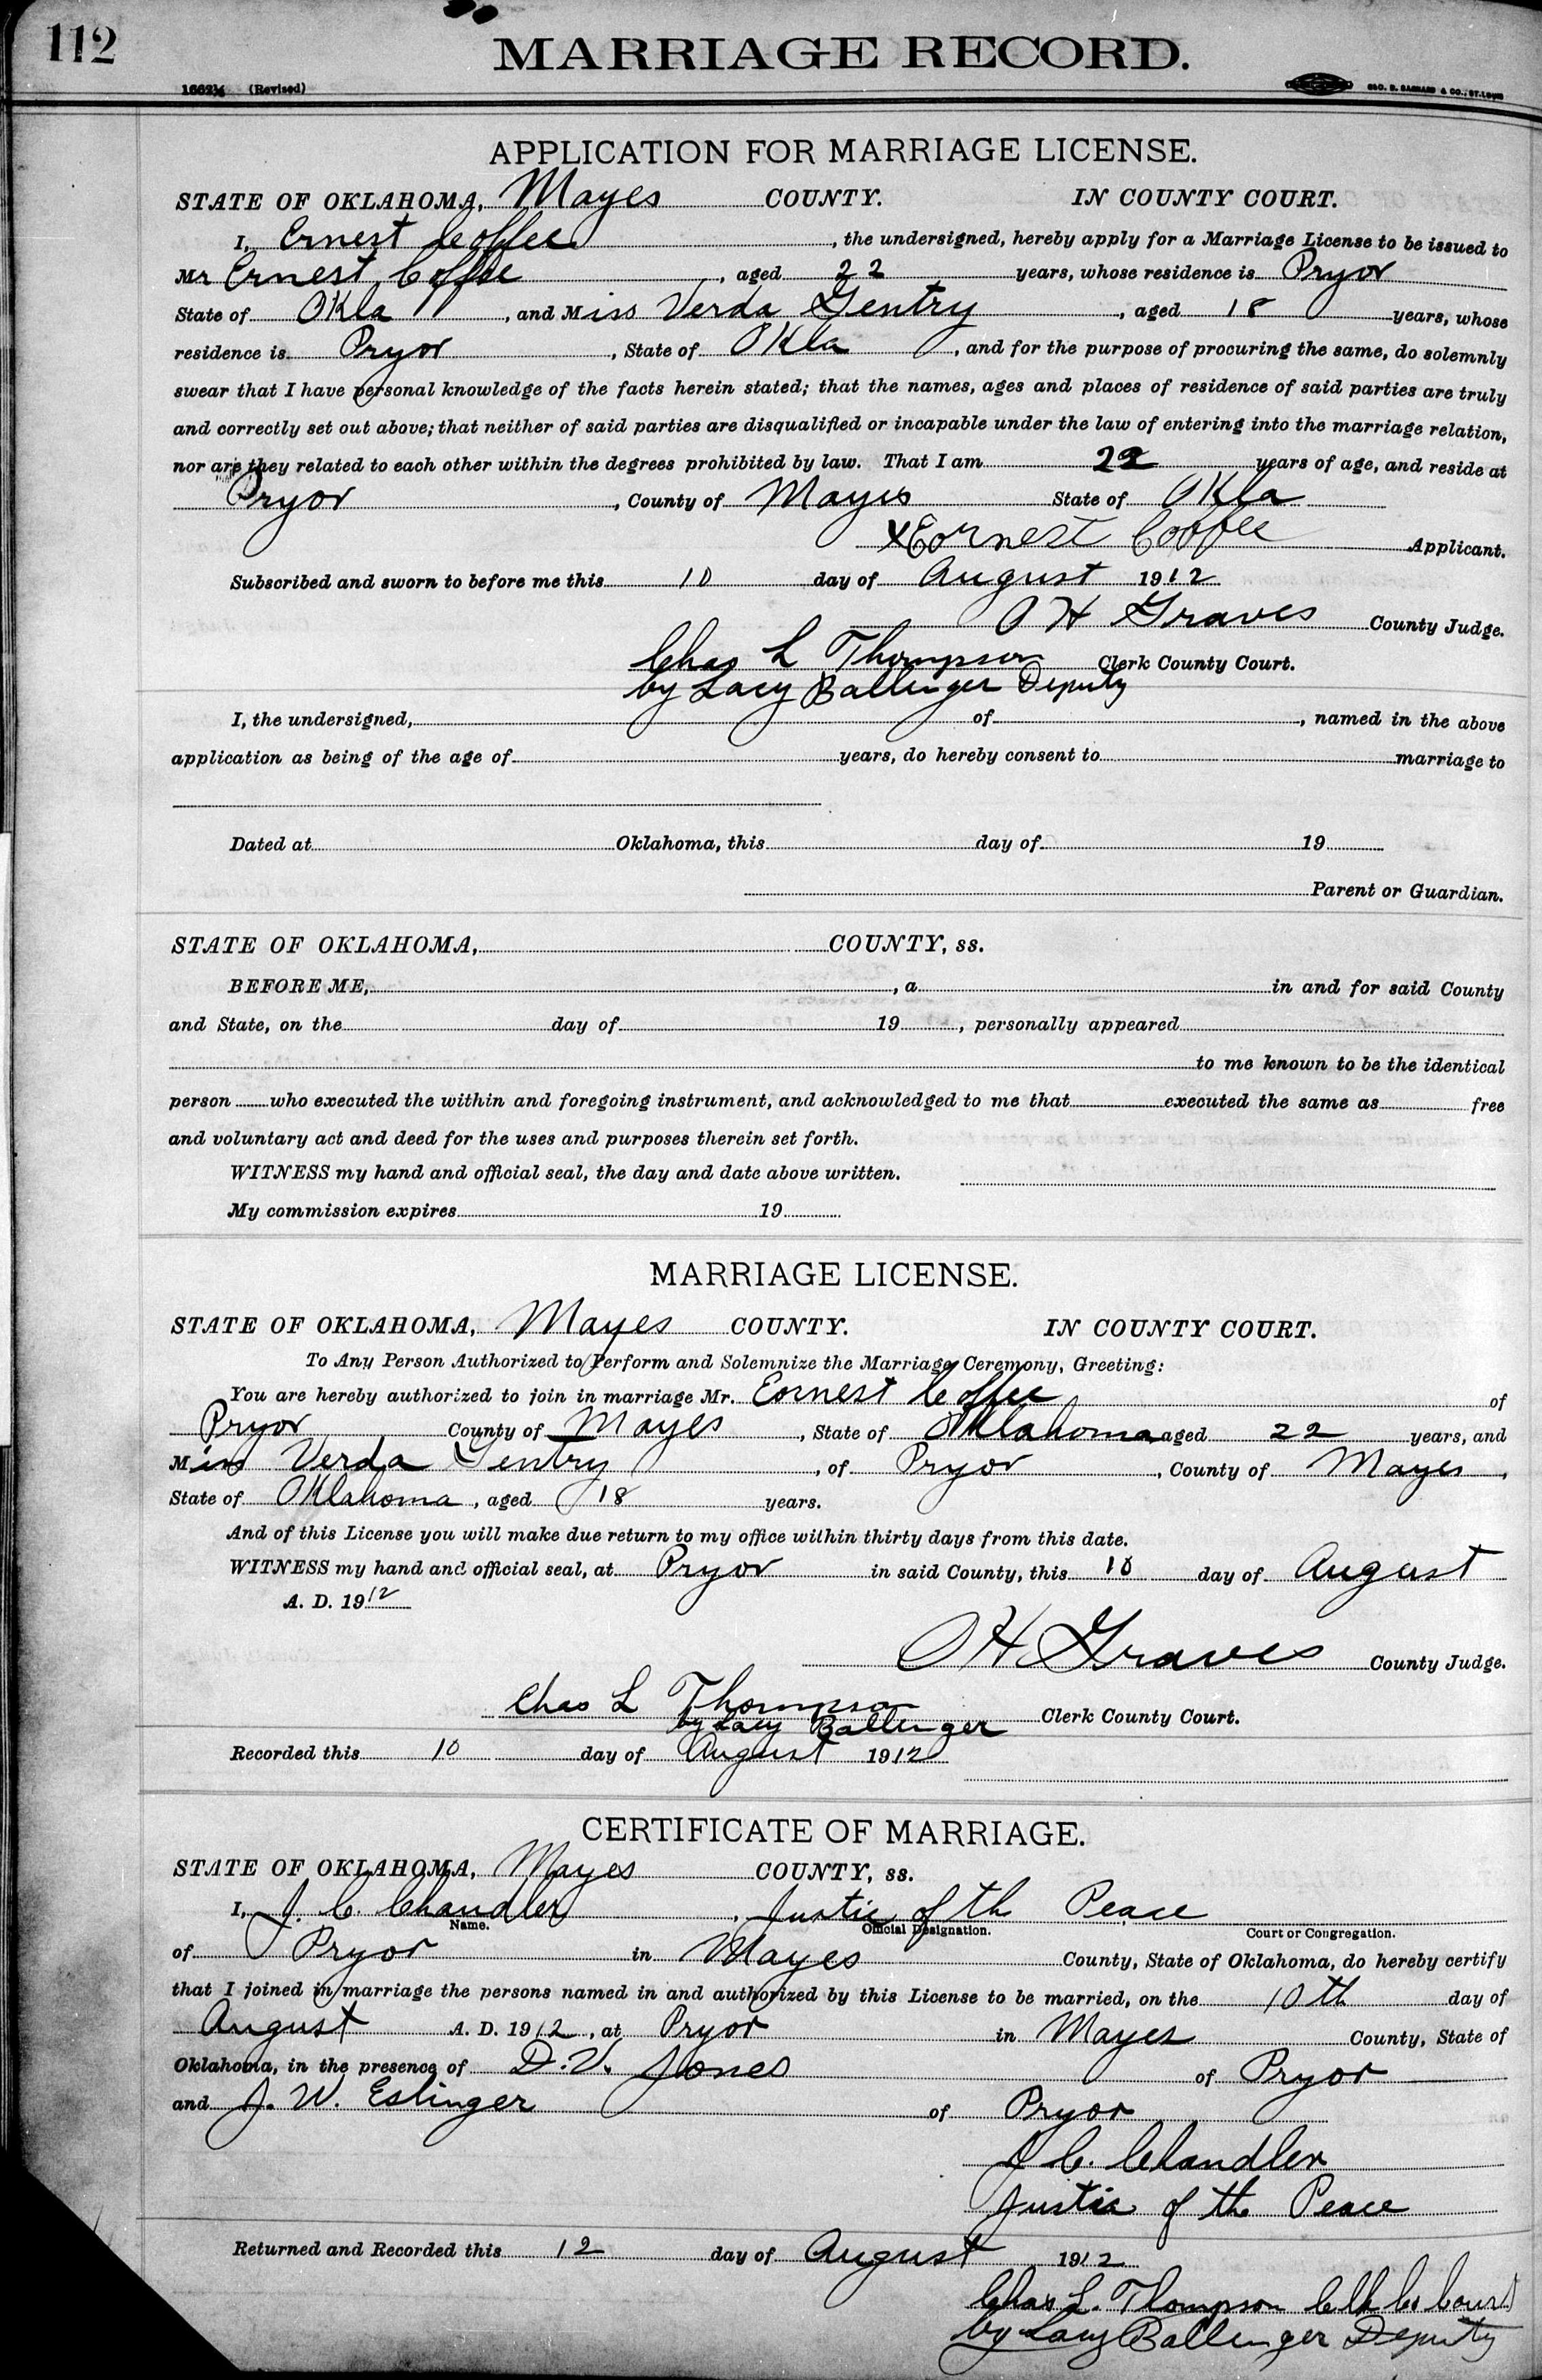 112
MARRIAGE RECORD.
1662½ (Revised)
GEO. D. BARNARD & CO., ST. LOUIS
APPLICATION FOR MARRIAGE LICENSE.
STATE OF OKLAHOMA, Mayes COUNTY. IN COUNTY COURT.
I, Ernest Coffee, the undersigned, hereby apply for a Marriage License to be issued to
Mr Ernest Coffee, aged 22 years, whose residence is Pryor
State of Okla, and Miss Verda Gentry, aged 18 years, whose
residence is Pryor, State of Okla, and for the purpose of procuring the same, do solemnly
swear that I have personal knowledge of the facts herein stated; that the names, ages and places of residence of said parties are truly
and correctly set out above; that neither of said parties are disqualified or incapable under the law of entering into the marriage relation,
nor are they related to each other within the degrees prohibited by law. That I am 22 years of age, and reside at
Pryor, County of Mayes State of Okla
X Eornest Coffee Applicant.
Subscribed and sworn to before me this 10 day of August 1912
O H Graves County Judge.
Chas L Thompson Clerk County Court.
by Lacy Ballinger Deputy
I, the undersigned, of, named in the above
application as being of the age of years, do hereby consent to marriage to
Dated at Oklahoma, this day of 19
Parent or Guardian.
STATE OF OKLAHOMA, COUNTY, ss.
BEFORE ME, , a in and for said County
and State, on the day of 19 , personally appeared
to me known to be the identical
person who executed the within and foregoing instrument, and acknowledged to me that executed the same as free
and voluntary act and deed for the uses and purposes therein set forth.
WITNESS my hand and official seal, the day and date above written.
My commission expires 19
MARRIAGE LICENSE.
STATE OF OKLAHOMA, Mayes COUNTY. IN COUNTY COURT.
To Any Person Authorized to Perform and Solemnize the Marriage Ceremony, Greeting:
You are hereby authorized to join in marriage Mr. Eornest Coffee of
Pryor County of Mayes, State of Oklahoma aged 22 years, and
Miss Verda Gentry, of Pryor, County of Mayes,
State of Oklahoma, aged 18 years.
And of this License you will make due return to my office within thirty days from this date.
WITNESS my hand and official seal, at Pryor in said County, this 10 day of August
A. D. 1912
O H Graves County Judge.
Chas L Thompson Clerk County Court.
by Lacy Ballinger
Recorded this 10 day of August 1912
CERTIFICATE OF MARRIAGE.
STATE OF OKLAHOMA, Mayes COUNTY, ss.
I, J. C. Chandler, Justic of th Peace
Name. Official Designation. Court or Congregation.
of Pryor in Mayes County, State of Oklahoma, do hereby certify
that I joined in marriage the persons named in and authorized by this License to be married, on the 10th day of
August A. D. 1912, at Pryor in Mayes County, State of
Oklahoma, in the presence of D. V. Jones of Pryor
and J. W. Eslinger of Pryor
J C. Chandler
Justic of the Peace
Returned and Recorded this 12 day of August 1912
Chas L. Thompson Clk Co Court
by Lacy Ballenger Deputy